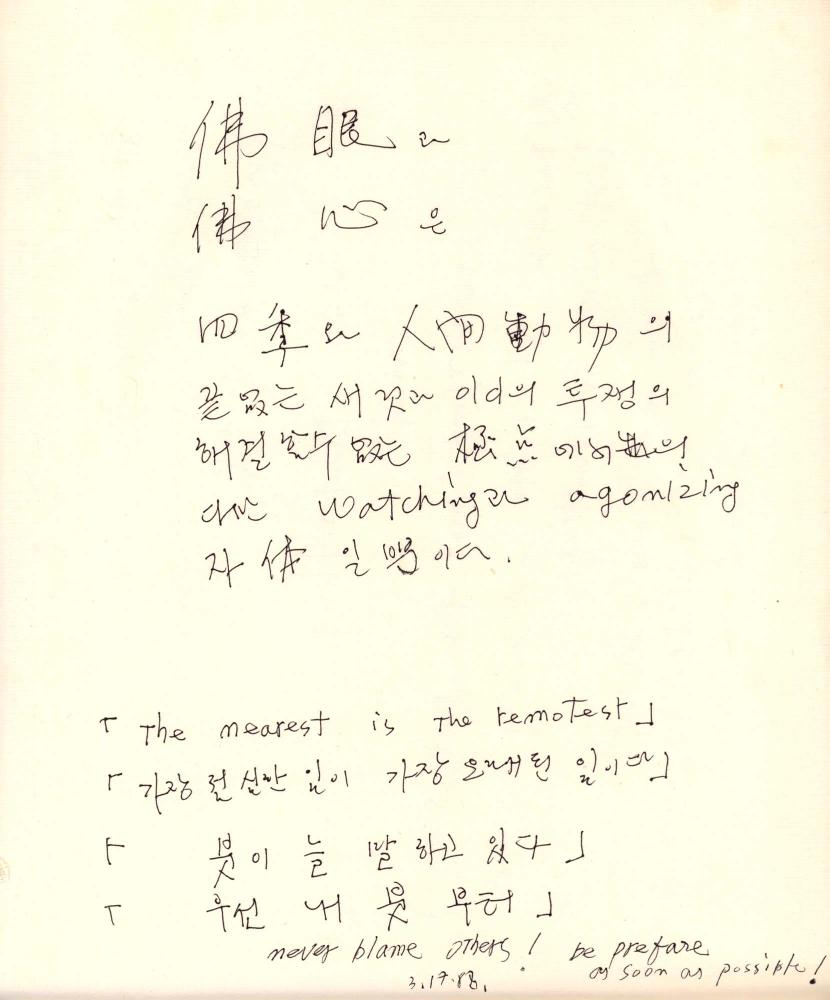 佛 眼과
佛 心은
四季와 人間動物의
끝없는 새것과 이의 투쟁의
해결할수 없는 極点에서의
다만 watching과 agonizing
자体 일뿐이다.
「The nearest is the remotest」
「가장 절실한 일이 가장 오래된 일이다」
「붓이 늘 말하고 있다」
「우선 내 붓 부터」
never blame others! be prefare
as soon as possible!
3.17.88.